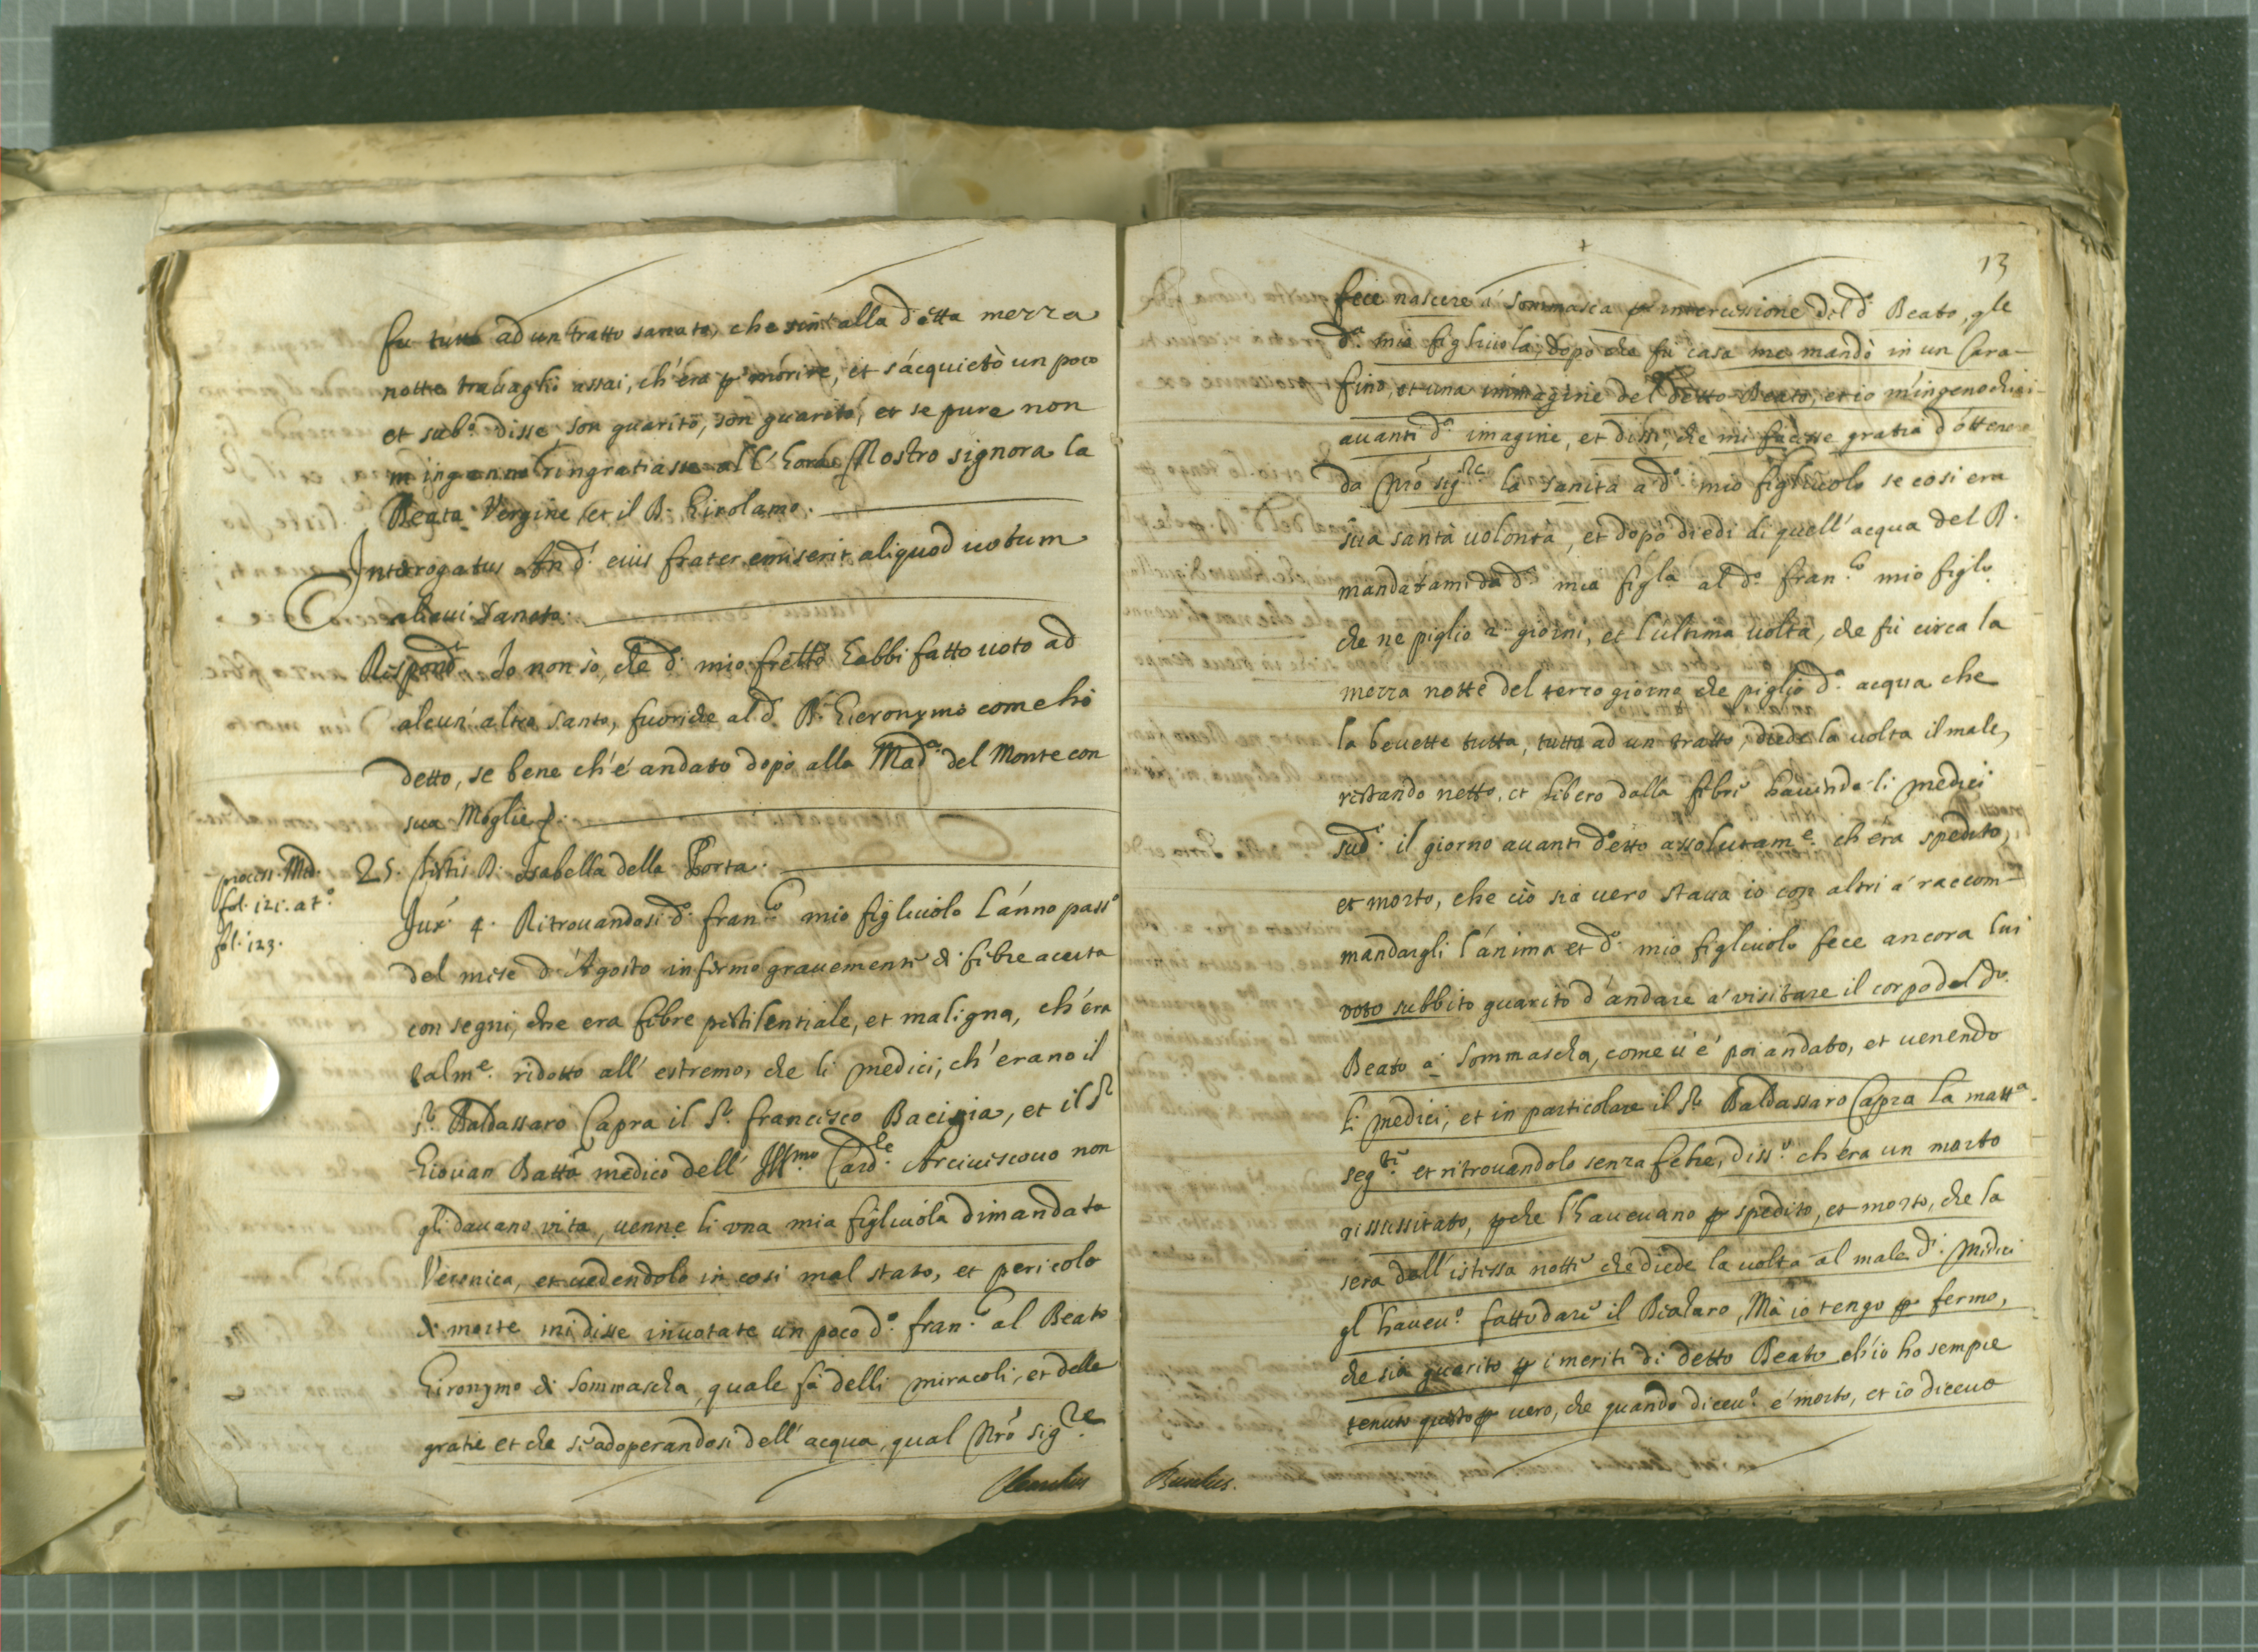 fu tutto ad un tratto sanato, che sin alla detta mezza
notte travaglió assai, ch'éra p morire, et s'acquietò un poco
et subo. disse son guarito, son guarito, et se pure non
m'inganno ringratiasse all'hora Nostro signore la
Beata Vergine, et il B. Girolamo.
Interogatus An d. eius frater emiserit aliquod uotum
alicui Sancto.
Respond.t Io non sò, che d. mio fretto habbi fatto uoto ad
alcun'altro Santo, fuori che al d. B. Hieronymo come hò
detto, se bene ch'é andato dopò alla Mad.a del Monte con
sua Moglie
process. Med.
fol. 121. at.o
fol. 123.
25. Testis D. Isabella della Porta.
Jux. 4. Ritrouandosi d.o fran.co mio figliuolo l'anno pass.o
del mese d'Agosto infermo grauemente di febre acuta
con segni, che era febre pestilentiale, et maligna, ch'éra
talm.e ridotto all'estremo, che li medici, ch'erano il
S.r Baldassaro Capra il S.r francisco Bacigia, et il S.r
Giouan Batta medico dell'Ill.mo Card.le Arciuiscouo non
gli dauano vita, uenne li una mia figliuola dimandata
Veronica, et uedendolo in cosi mal stato, et pericolo
di morte mi disse inuotate un poco d.o fran.co al Beato
Gironymo di Sommascha, quale fà delli miracoli, et delle
gratie et che si adoperandosi dell'acqua, qual Nrõ Sig.re
13
fece nascere á Sommasca p intercessione del d.o Beato, qle
d.a mia figliuola, dopò che fu casa me mandò in un Cara-
fino, et una immagine del detto Beato, et io m'ingenochiai
auanti d.a imagine, et dissi, che mi facesse gratia d'ottenere
da Nrõ sig.re la sanità a d.o mio figliuolo se cosi era
sua santa uolontà, et dopò diedi di quell'acqua del B.
mandatami da d.a mia figla al d.o fran.co mio figlo
che ne piglio 2 giorni, et l'ultima uolta, che fù circa la
mezza notte del terzo giorno che pigliò d.a acqua che
la beuette tutta, tutto ad un tratto, diede la uolta il male,
restando netto, et libero dalla febre hauendo li medici
sud.i il giorno auanti detto assolutam.e ch'era spedito,
et morto, che ciò sia uero staua io con altri á raccom-
mandargli l'ánima et d.o mio figliuolo fece ancora lui
voto subbito guarito d'andare á visitare il corpo del d.o
Beato á Sommascha, come ú é poi andato, et uenendo
li medici, et in particolare il S.r Baldassaro Capra la matt.a
seg.te et ritrouandolo senza febre, disse ch'éra un morto
rissussitato, pche l'haueuano p spedito, et morto, che la
sera dell'istessa notte che diede la uolta al male d.i Medici
gl'haueu.o fatto dare il Bealaro, Mà io tengo p fermo,
che sia guarito p i meriti di detto Beato ch'io ho sempre
tenuto questo p uero, che quando diceu.o é morto, et io diceuo